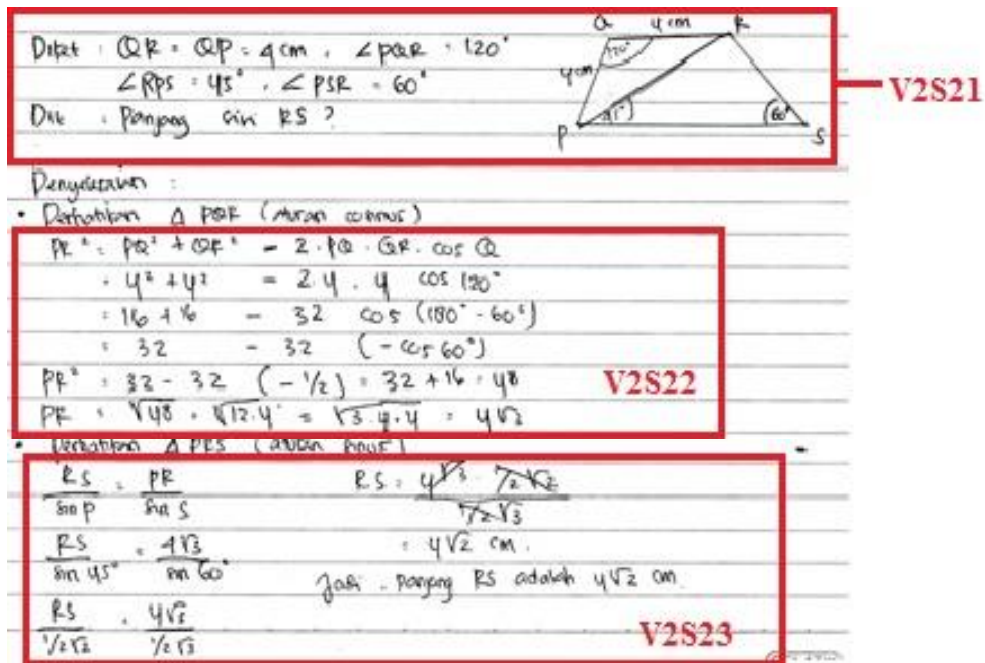 Diket : QR = QP = 4 cm , ∠PQR = 120°
∠RPS = 45° , ∠PSR = 60°
Dit : Panjang sisi RS ?
Q 4 cm R
120°
4 cm
45° 60°
P S
V2S21
Penyelesaian :
• Perhatikan Δ PQR (Aturan cosinus)
PR² = PQ² + QR² - 2 . PQ . QR . cos Q
= 4² + 4² = 2.4 . 4 cos 120°
= 16 + 16 - 32 cos (180° - 60°)
= 32 - 32 (- cos 60°)
PR² = 32 - 32 (- 1/2) = 32 + 16 = 48
PR = √48 = √12.4 = √3.4.4 = 4√3
V2S22
• Perhatikan Δ PRS (aturan sinus)
RS / sin P = PR / sin S
RS / sin 45° = 4√3 / sin 60°
RS / 1/2√2 = 4√3 / 1/2√3
RS = 4√3 . 1/2√2 / 1/2√3
= 4√2 cm .
Jadi , panjang RS adalah 4√2 cm
V2S23